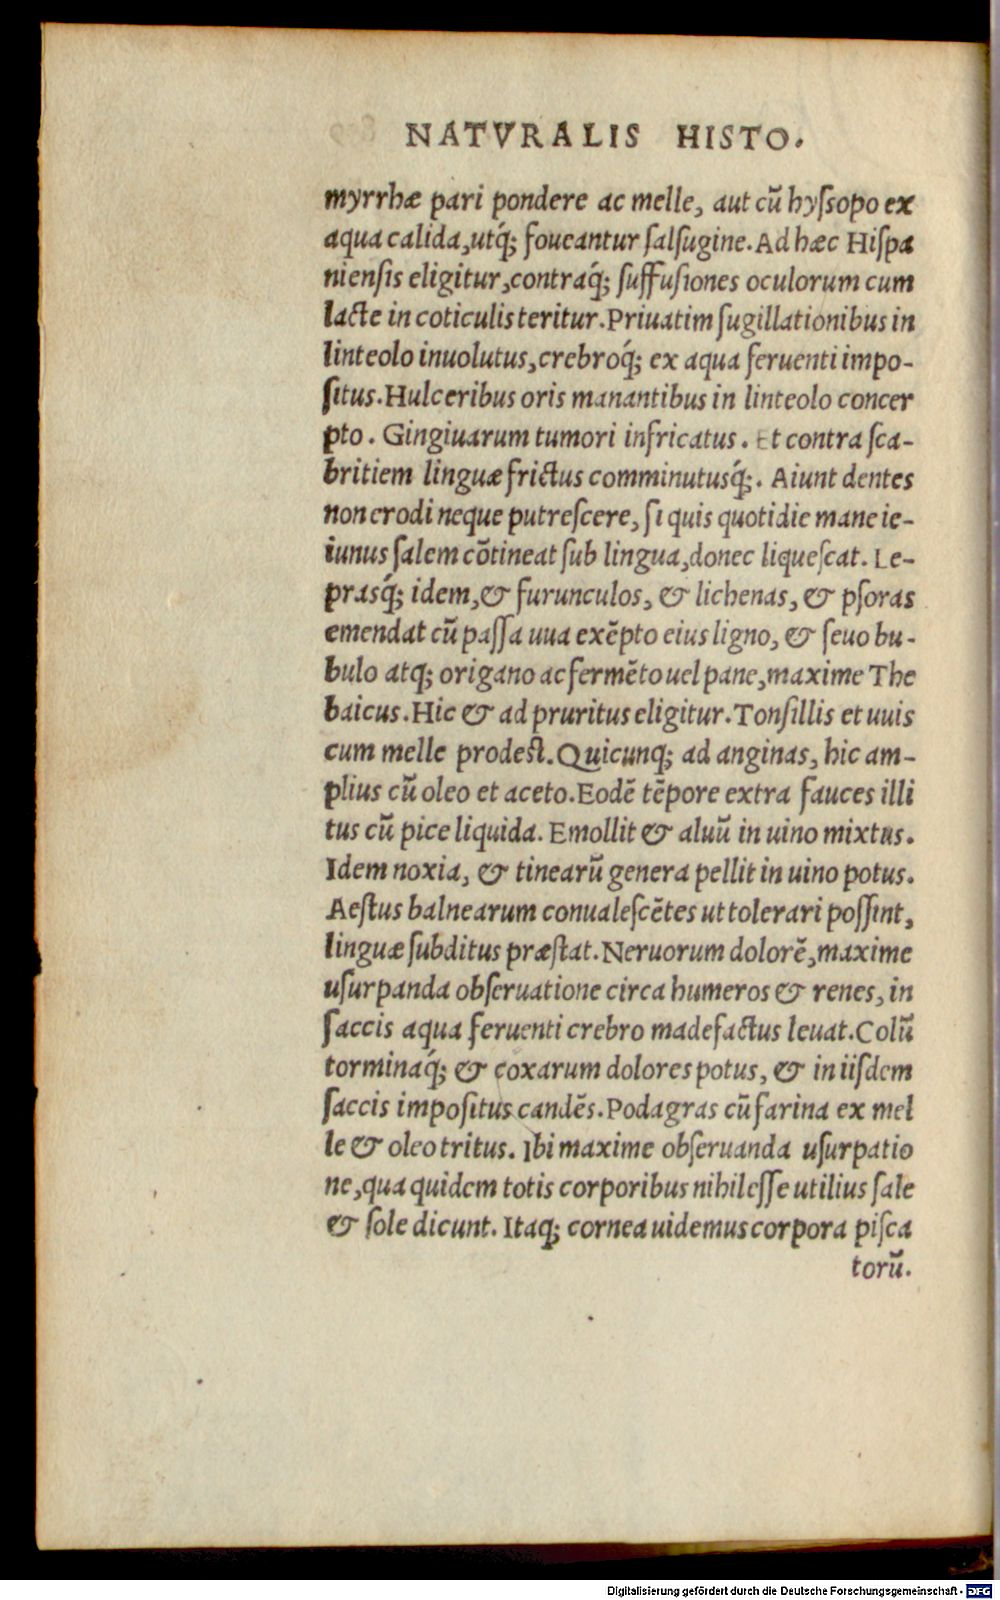 NATVRALIS HISTO.
myrrhæ pari pondere ac melle, aut cū hyſsopo ex
aqua calida,utq́; foueantur ſalſugine.Ad hæc Hiſpa
nienſis eligitur,contraq́; ſuffuſiones oculorum cum
lacte in coticulis teritur.Priuatim ſugillationibus in
linteolo inuolutus,crebroq́; ex aqua feruenti impo-
ſitus.Hulceribus oris manantibus in linteolo concer
pto. Gingiuarum tumori infricatus. Et contra ſca-
britiem linguæ frictus comminutusq́;. Aiunt dentes
non erodi neque putreſcere, ſi quis quotidie mane ie-
iunus ſalem cōtineat ſub lingua,donec liqueſcat. Le-
prasq́; idem,& furunculos, & lichenas, & pſoras
emendat cū paſſa uua exēpto eius ligno, & ſeuo bu-
bulo atq; origano ac fermēto uel pane,maxime The
baicus.Hic & ad pruritus eligitur.Tonſillis et uuis
cum melle prodeſt.Quicunq; ad anginas, hic am-
plius cū oleo et aceto.Eodē tēpore extra fauces illi
tus cū pice liquida. Emollit & aluū in uino mixtus.
Idem noxia, & tinearū genera pellit in uino potus.
Aeſtus balnearum conualeſcētes ut tolerari poſſint,
linguæ ſubditus præſtat.Neruorum dolorē,maxime
uſurpanda obſeruatione circa humeros & renes, in
ſaccis aqua feruenti crebro madefactus leuat.Colū
torminaq́; & coxarum dolores potus, & in iiſdem
ſaccis impoſitus candēs.Podagras cū farina ex mel
le & oleo tritus. Ibi maxime obſeruanda uſurpatio
ne,qua quidem totis corporibus nihil eſſe utilius ſale
& ſole dicunt. Itaq; cornea uidemus corpora piſca
torū.
Digitalisierung gefördert durch die Deutsche Forschungsgemeinschaft - DFG